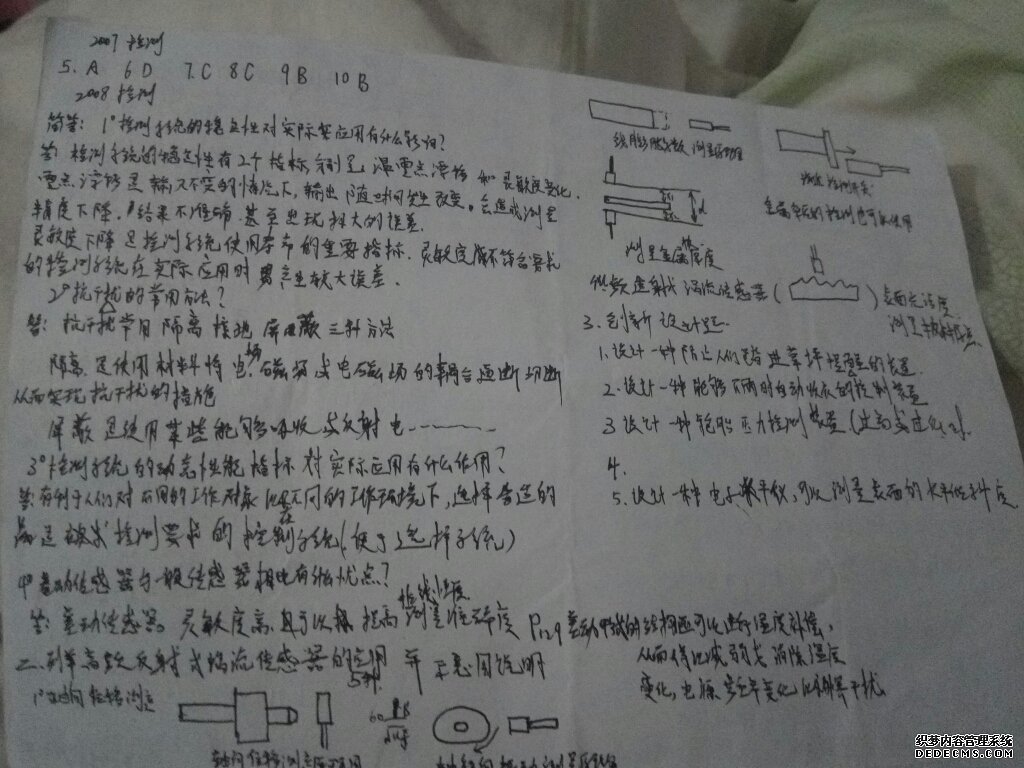 2007 检测
5. A 6 D 7. C 8 C 9 B 10 B
2008 检测
简答: 1° 检测系统的稳定性对实际型应用有什么影响?
答: 检测系统的稳定性有2个指标 分别是 温零点漂移 和 灵敏度变化.
零点漂移是输入不变的情况下, 输出随时间发生改变. 会造成测量
精度下降, 结果不准确 甚至出现 较大的误差.
灵敏度下降 是检测系统使用寿命的重要指标. 灵敏度不符合要求
的检测系统在实际应用时 产生较大误差.
2° 抗干扰的常用方法?
答: 抗干扰常用 隔离 接地 屏蔽 三种方法
隔离 是使用材料将电场 磁场 或电磁场的耦合 切断
从而实现抗干扰的措施
屏蔽 是使用某些能够吸收或反射电
3° 检测系统的动态性能指标 对实际应用有什么作用?
答: 有利于人们对不同的工作对象 不同的工作环境下, 选择合适的
检测要求的控制系统 (便于选择系统)
4° 差动传感器与一般传感器相比有什么优点?
答: 差动传感器 灵敏度高 且可以 提高 测量准确度 P129 差动 的结构还可以进行温度补偿,
从而得以减弱或 消除 温度
变化, 电源 频率变化 干扰
二. 列举高频反射式涡流传感器的应用 5种 并 用图说明
1° 轴向位移测定
轴向位移测定
线膨胀系数 测量
金属 的检测也可以使用
测量金属厚度
低频透射式 涡流传感器 ( ) 表面光洁度
测量
3. 创新设计题.
1. 设计一种防止人们踏进草坪 的装置.
2. 设计一种能够下雨时自动收衣的控制装置
3 设计一种轮胎压力检测装置 (
4.
5. 设计一种电子水平仪, 可以测量表面的水平倾斜度
织梦内容管理系统
DEDECMS.COM